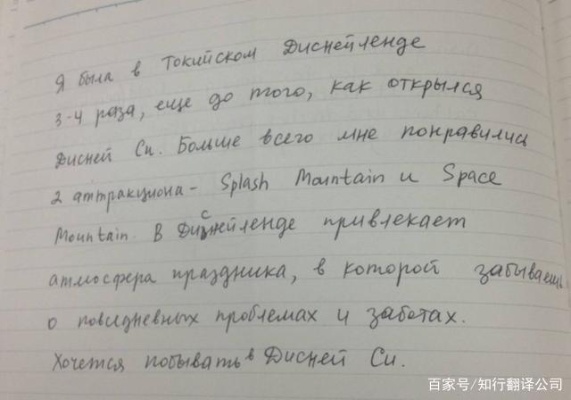 Я была в Токийском Диснейленде
3-4 раза, еще до того, как открылся
Дисней Си. Больше всего мне понравились
2 аттракциона - Splash Mountain и Space
Mountain. В Диснейленде привлекает
атмосфера праздника, в которой забываешь
о повседневных проблемах и заботах.
Хочется побывать в Дисней Си.
百家号/知行翻译公司